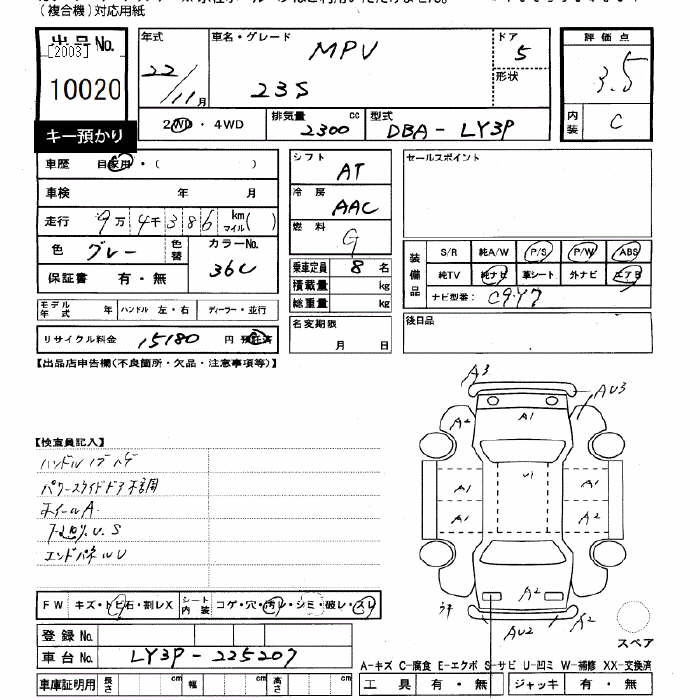 (複合機)対応用紙
出品No.
[2003]
10020
キー預かり
年式
22/11月
車名・グレード
MPV
23S
ドア
5
形状
評価点
3.5
内装
C
2WD・4WD
排気量 cc
2300
型式
DBA-LY3P
車歴 自家用・( )
車検 年 月
走行 9万4千386 km マイル( )
色 グレー
色替
カラーNo.
36C
保証書 有・無
モデル年式 年 ハンドル 左・右 ディーラー・並行
リサイクル料金 15180 円 預託済
シフト
AT
冷房
AAC
燃料
G
乗車定員 8 名
積載量 kg
総重量 kg
名変期限
月 日
セールスポイント
装備品
S/R 純A/W P/S P/W ABS
純TV 純ナビ 革シート 外ナビ エアB
ナビ型番: C9Y7
後日品
【出品店申告欄(不良箇所・欠品・注意事項等)】
【検査員記入】
ハンドル
パワースライドドア不調
ホイールA
下廻りU.S
エンドパネルU
A3
AU3
A2
A1
U1
A1
A1
A1
A2
A2
A2
AU2
スペア
FW キズ・トビ石・割レX シート内装 コゲ・穴・汚レ・シミ・破レ・スレ
登録No.
車台No. LY3P-225207
A-キズ C-腐食 E-エクボ S-サビ U-凹ミ W-補修 XX-交換済
車庫証明用 長さ cm 幅 cm 高さ cm
工具 有・無 ジャッキ 有・無